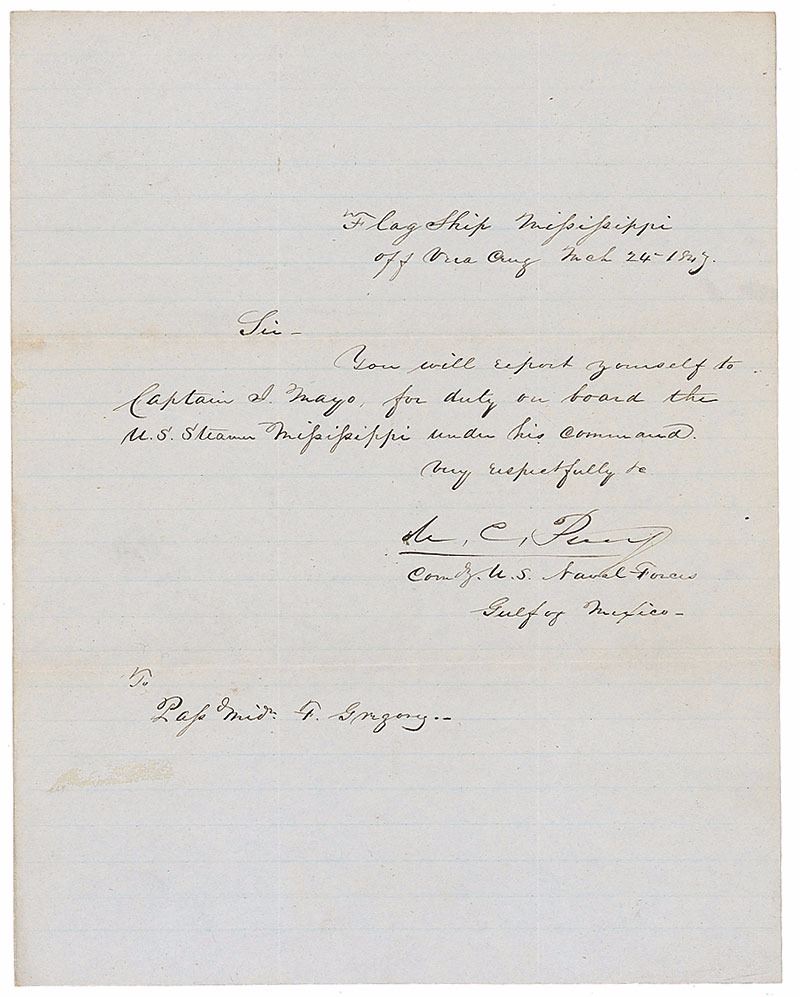 Flag Ship Mississippi
off Vera Cruz Mch 24 - 1847.
Sir -
You will report yourself to
Captain I. Mayo, for duty on board the
U.S. Steamer Mississippi under his command.
Very respectfully &c
M. C. Perry
Comdg. U.S. Naval Forces
Gulf of Mexico -
To
Passd Midn. F. Gregory. -